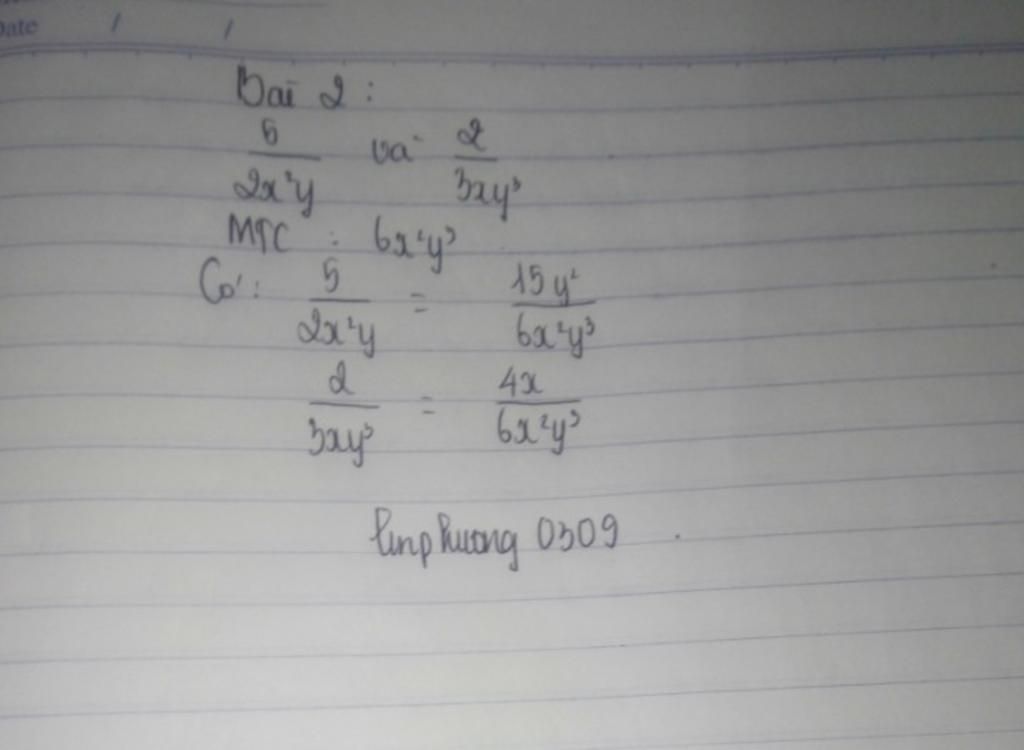 Date / /
Bài 2 :
5/2x²y và 2/3xy³
MTC : 6x²y³
Có : 5/2x²y = 15y²/6x²y³
2/3xy³ = 4x/6x²y³
linphuong 0309